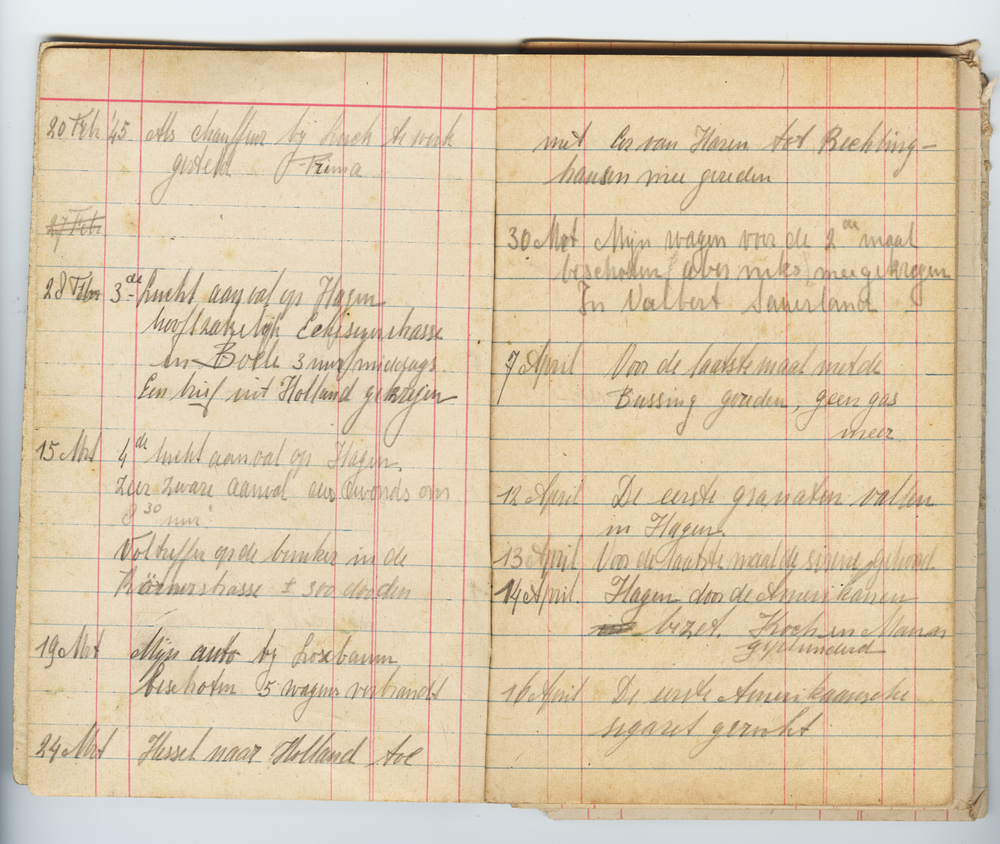 20 Feb '45 Als chauffeur bij Luch te werk
gesteld Prima
27 Feb
28 Febr 3de lucht aanval op Hagen
hoofdzakelijk Eckeseyerstrasse
en Boele 3 uur smiddags.
Een brief uit Holland gekregen
15 Mrt 4de lucht aanval op Hagen.
Zeer zware aanval des avonds om
8 30 uur
Voltreffer op de bunker in de
Körnerstrasse ± 300 dooden
19 Mrt Mijn auto bij Loxbaum
beschoten 5 wagens verbrandt
24 Mrt Hessel naar Holland toe
mit Cor van Haren tot Reckling-
hausen mee gereden
30 Mrt Mijn wagen voor de 2de maal
beschoten (aber niks) meegekregen
In Valbert Sauerland
7 April Voor de laatste maal met de
Bussing gereden, geen gas
meer
12 April De eerste granaten vallen
in Hagen.
13 April Voor de laatste maal de sirene gehoord
14 April. Hagen door de Amerikanen
bezet. Koch en Mann
geplunderd
16 April De eerste Amerikaansche
sigaret gerookt